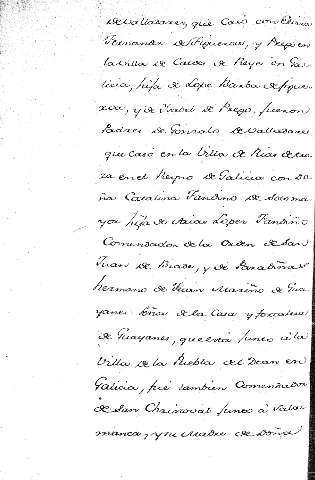 de Valladares, que Casó con Elvira
Fernandez de Figueroa, y Prego en
la Villa de Caldas de Reyes en Ga-
licia, hija de Lope Barba de figue-
roa, y de Ysabel de Prego, fueron
Padres de Gonzalo de Valladares
que casó en la Villa de
en el Reyno de Galicia con Do-
ña Catalina Fandino de Soma-
yor hija de Arias Lopez Fandiño
Comendador de la Orden de San
Juan de y de
hermano de Juan Mariño de Gua-
yanes Señor de la Casa y fortaleza
de Guayanes, que está junto á la
Villa de la Puebla del Dean en
Galicia, fué tambien Comendador
de San junto á Sala-
manca, y su Madre de Doña